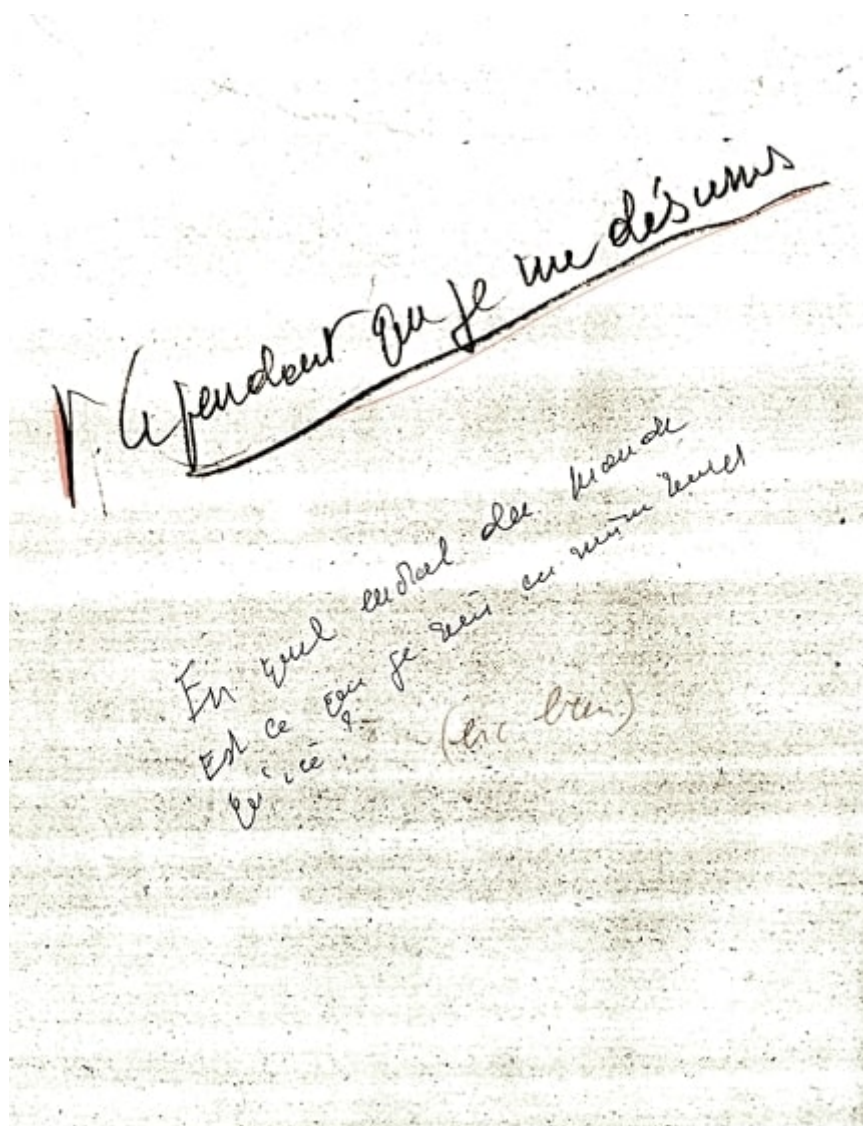 Cependant que je me désunis
En quel endroit du monde
Est ce que je suis en même temps
Qu'ici ?